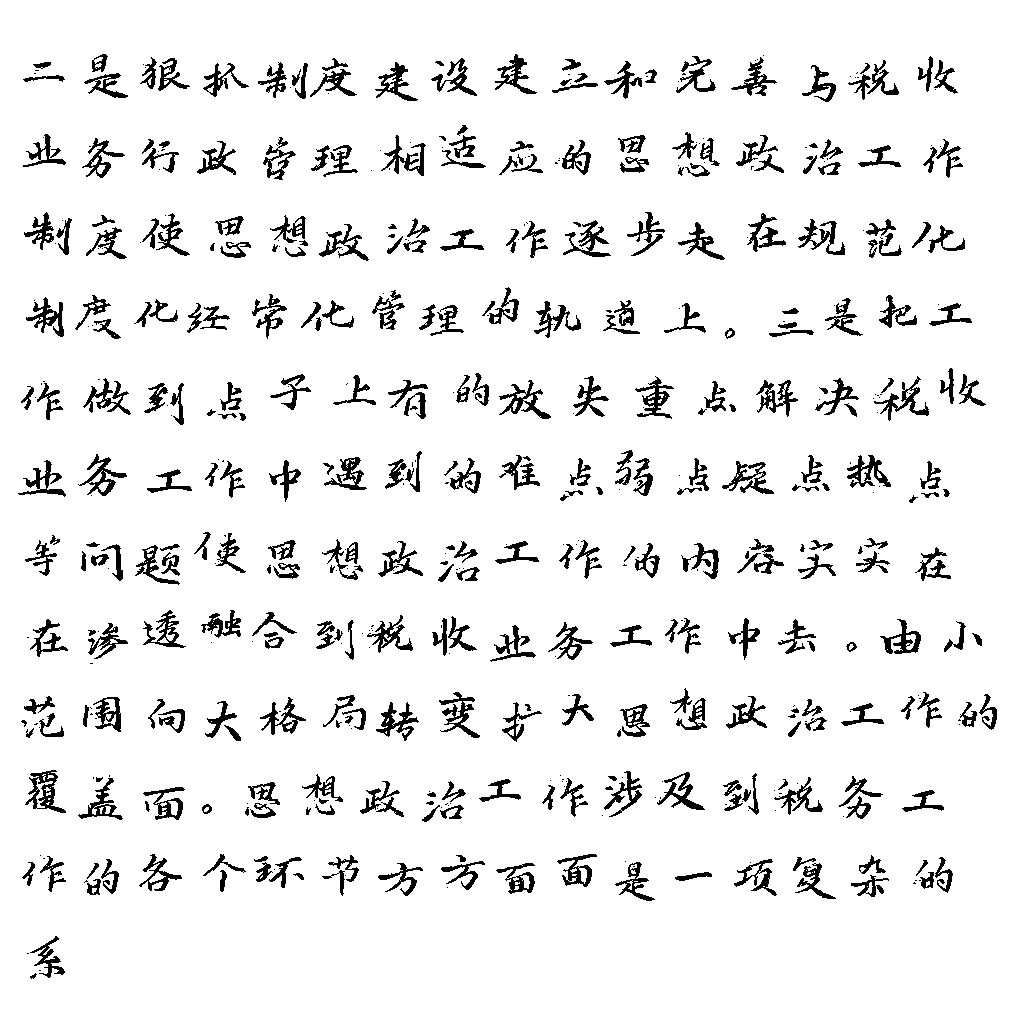 二是狠抓制度建设建立和完善与税收
业务行政管理相适应的思想政治工作
制度使思想政治工作逐步走在规范化
制度化经常化管理的轨道上。三是把工
作做到点子上有的放失重点解决税收
业务工作中遇到的难点弱点疑点热点
等问题使思想政治工作的内容实实在
在渗透融合到税收业务工作中去。由小
范围向大格局转变扩大思想政治工作的
覆盖面。思想政治工作涉及到税务工
作的各个环节方方面面是一项复杂的
系